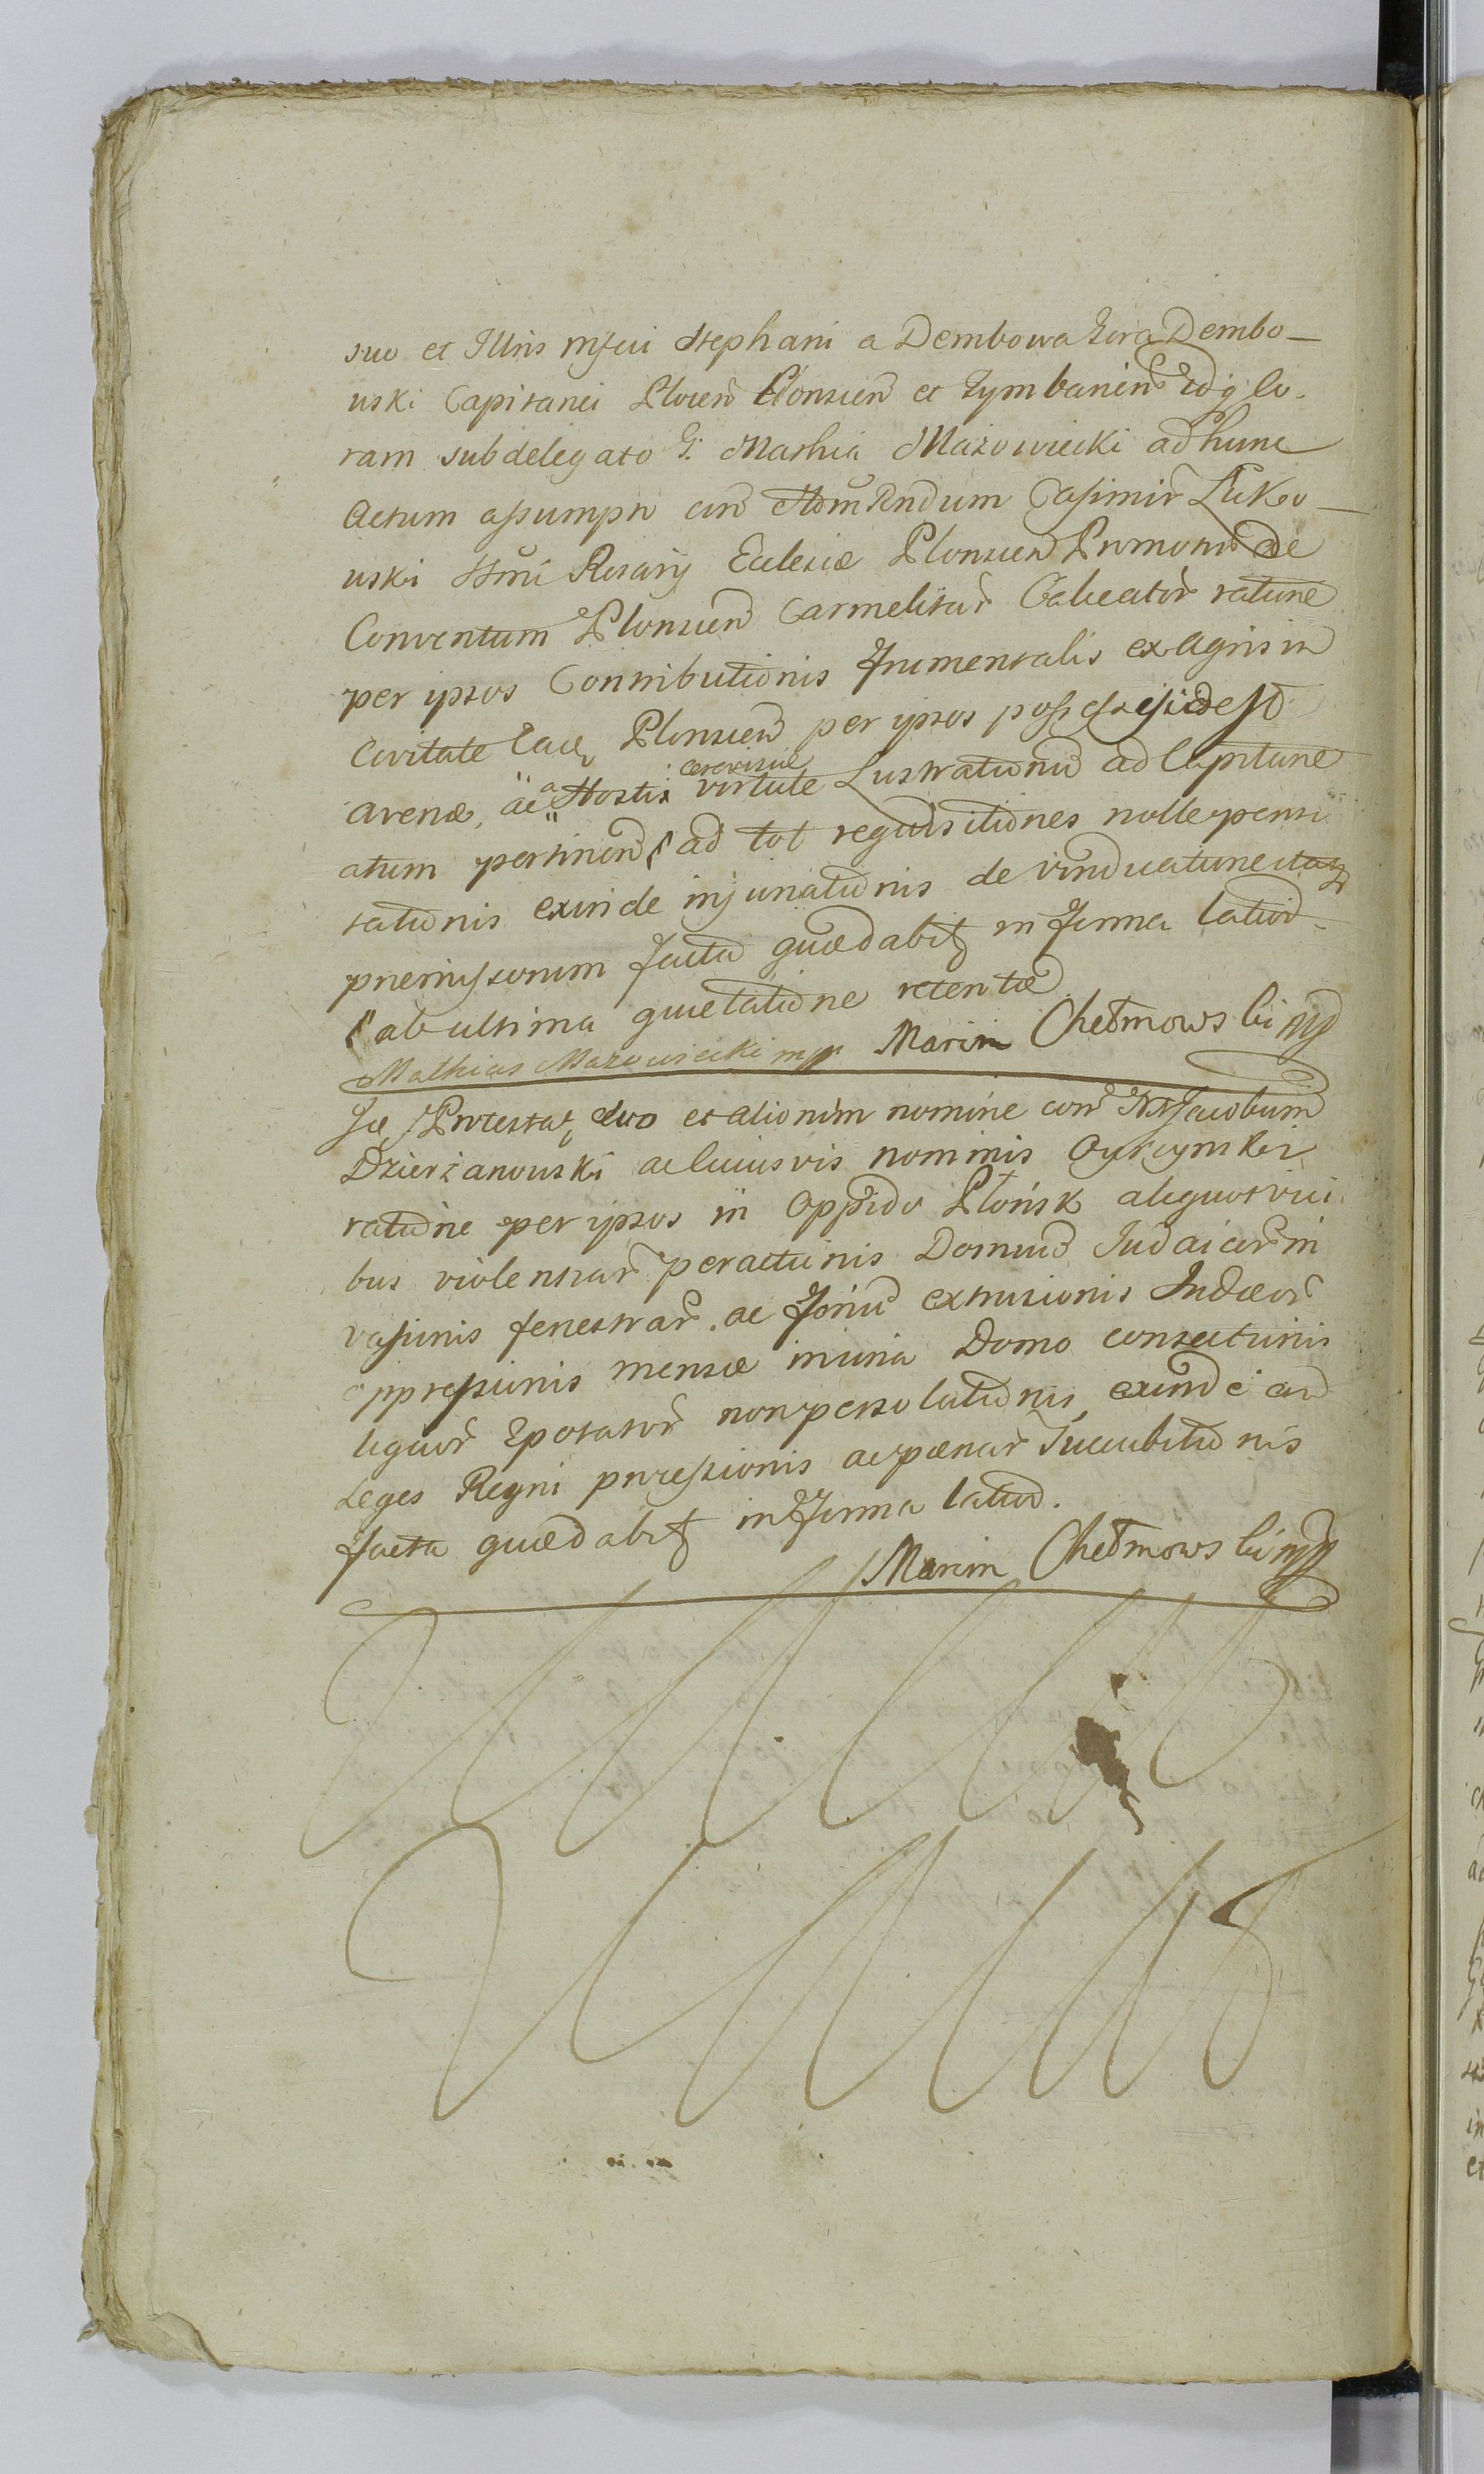 suo et Illris Mfici Stephani a Dembowa Gora Dembo–
uski Capitanei Plocen Plonscen et Zymbanien Idq co
ram subdelegato G. Mathia Mazowiecki ad hunc
Actum assumpto con Adm Rndum Casimir Luko–
uski Ssmi Rosarij Ecclesiæ Plonscen Promotor de
Conventum Plonscen Carmelitar Calceator ratione
per ipsos Contributionis frumentalis ex Agris in
Civitate Plonscen per ipsos possessis id est
Avenæ, ac a cerevisiæ virtute Lustrationum ad Capitane
atum pertinen ad tot requisitiones nolle pensi
tationis exinde injuriationis de vindicatione
præmissorum facta quædabit in forma latiori
ab ultima quietatione retentæ
Mathias Mazowiecki mp Marcin Chełmowski mp
Se Protestat suo et aliorum nomine con Jacobum
Dzierżanouski ac cuiusvis nominis Ojrzynski
ratione per ipsos in Oppido Płońsk aliquot vici
bus violentiar peractionis Domuum Judaicar in
vasionis fenestrar ac forium extrusionis Judæor
oppressionis mensæ in una Domo consectionis
liquor Epotator non persolutionis, exinde con
Leges Regni processionis ac pœnar Succubitionis
facta quædabit in forma latiori.
Marcin Chełmowski mp